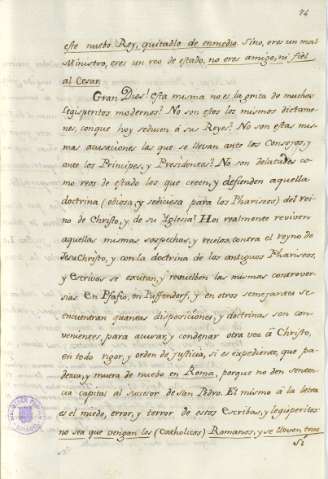 74
este nuebo Rey, quitadlo de enmedio. Sino, eres un mal
Ministro, eres un reo de estado, no eres amigo, ni fiel
al Cesar.
Gran Dios! Esta misma no es la grita de muchos
Legisperitos modernos? No son estos los mismos dictame-
nes, conque hoi seducen á sus Reyes? No son estas mis-
mas acusaciones las que se llevan ante los Consejos, y
ante los Principes, y Presidentes? No son delatados co-
mo reos de estado los que creen, y defienden aquella
doctrina (odiosa, y sediciosa para los Phariseos) del rei-
no de Christo, y de su Iglesia? Hoi realmente reviven
aquellas mismas sospechas, y recelos contra el reyno de
Jesu Christo, y con la doctrina de los antiguos Phariseos,
y Escrivas se excitan, y rebuelben las mismas controver-
sias. En Pfafio, en Puffendorf, y en otros semejantes se
encuentran quantas disposiciones, y doctrinas son con-
venientes, para acusar, y condenar otra vez á Christo,
en todo rigor, y orden de justicia, si es expediente, que pa-
dezca, y muera de nuebo en Roma, porque no den senten-
cia capital al sucesor de San Pedro. El mismo á la letra
es el miedo, error, y terror de estos Escribas, y legisperitos:
no sea que vengan los (catholicos) Romanos, y se lleven tras
si